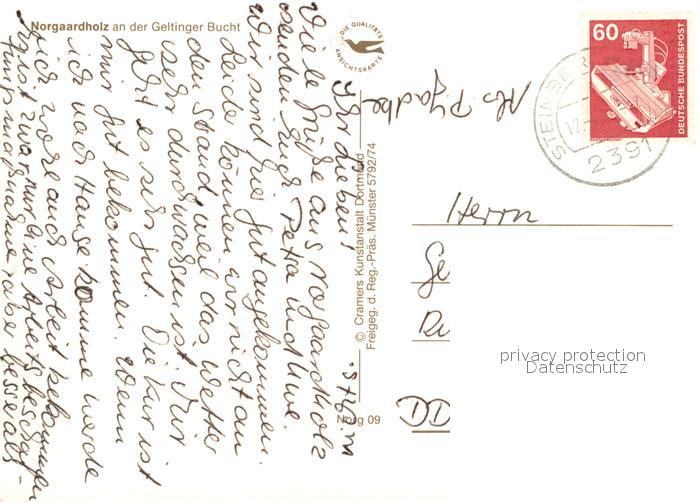 Norgaardholz an der Geltinger Bucht
DIE QUALITÄTS
ANSICHTSKARTE
60
DEUTSCHE BUNDESPOST
STEINBE
12.
2391
Als
© Cramers Kunstanstalt Dortmund
Freigeg. d. Reg.-Präs. Münster 5792/74
Norg 09
Herrn
Ge
DD
privacy protection
Datenschutz
Ihr Lieben!
Viele Grüße aus Norgaardholz
senden Euch Petra und Uwe.
Wir sind gut angekommen.
Leider können wir nicht an
den Strand, weil das Wetter
sehr durchwachsen ist. Mir
geht es sehr gut. Die Kur ist
mir gut bekommen. Wenn
ich nach Hause komme werde
ich wohl auch Arbeit bekommen
ist zwar nur eine Arbeitsbeschaf-
fungsmaßnahme aber besser als